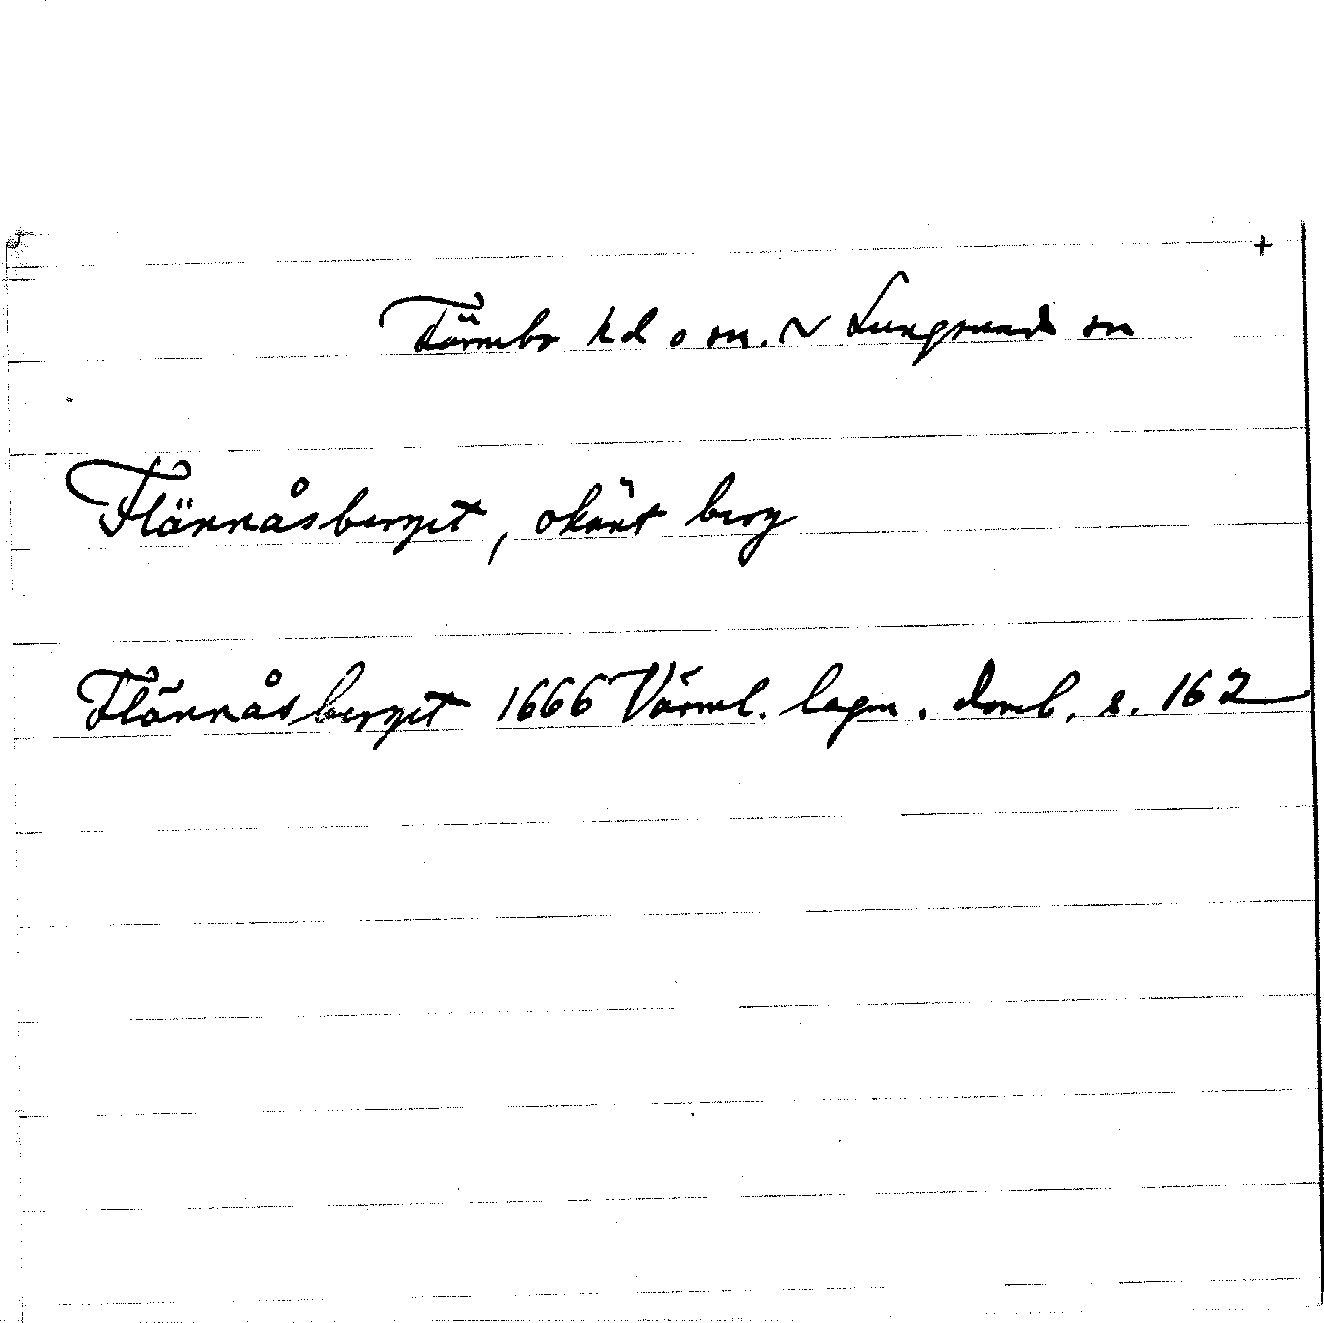 +
Färnebo hd o sn. ~ Lungsund sn
Flännåsberget, okänt berg
Flännåsberget 1666 Värml. lagm. domb. s. 162